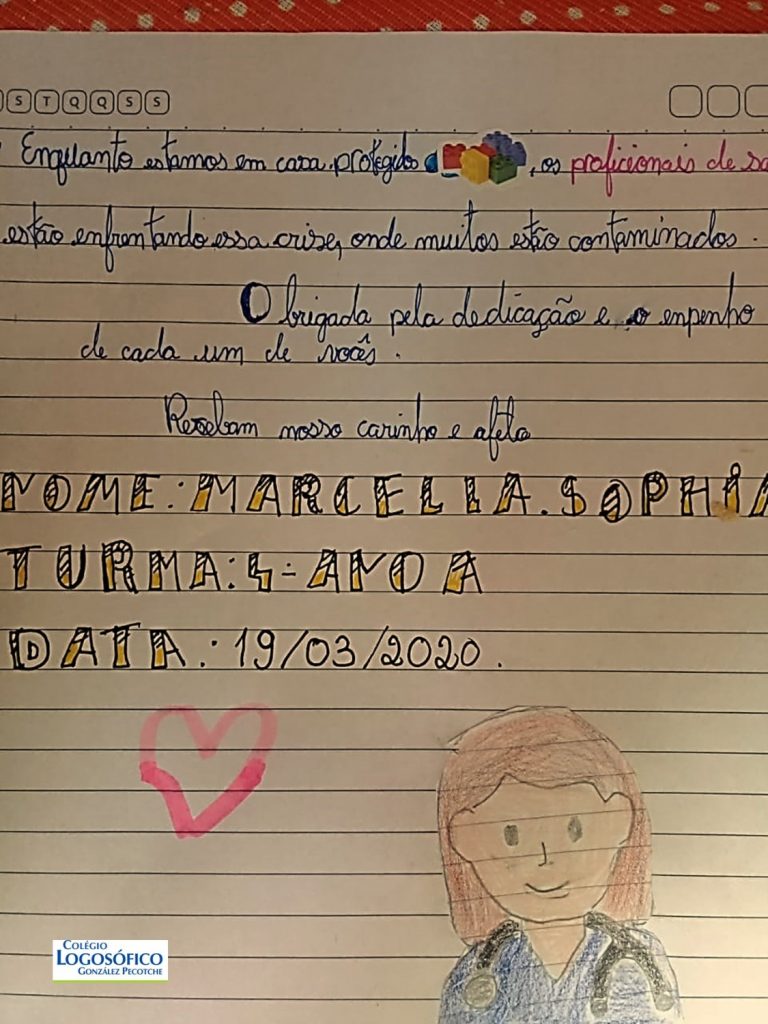 S T Q Q S S
Enquanto estamos em casa protegido, os proficionais de sa
estão enfrentando essa crise, onde muitos estão contaminados.
Obrigada pela dedicação e o enpenho
de cada um de vocês.
Recebam nosso carinho e afeto
NOME: MARCELLA. SOPHIA
TURMA: 4- ANO A
DATA: 19/03/2020.
COLÉGIO
LOGOSÓFICO
GONZÁLEZ PECOTCHE